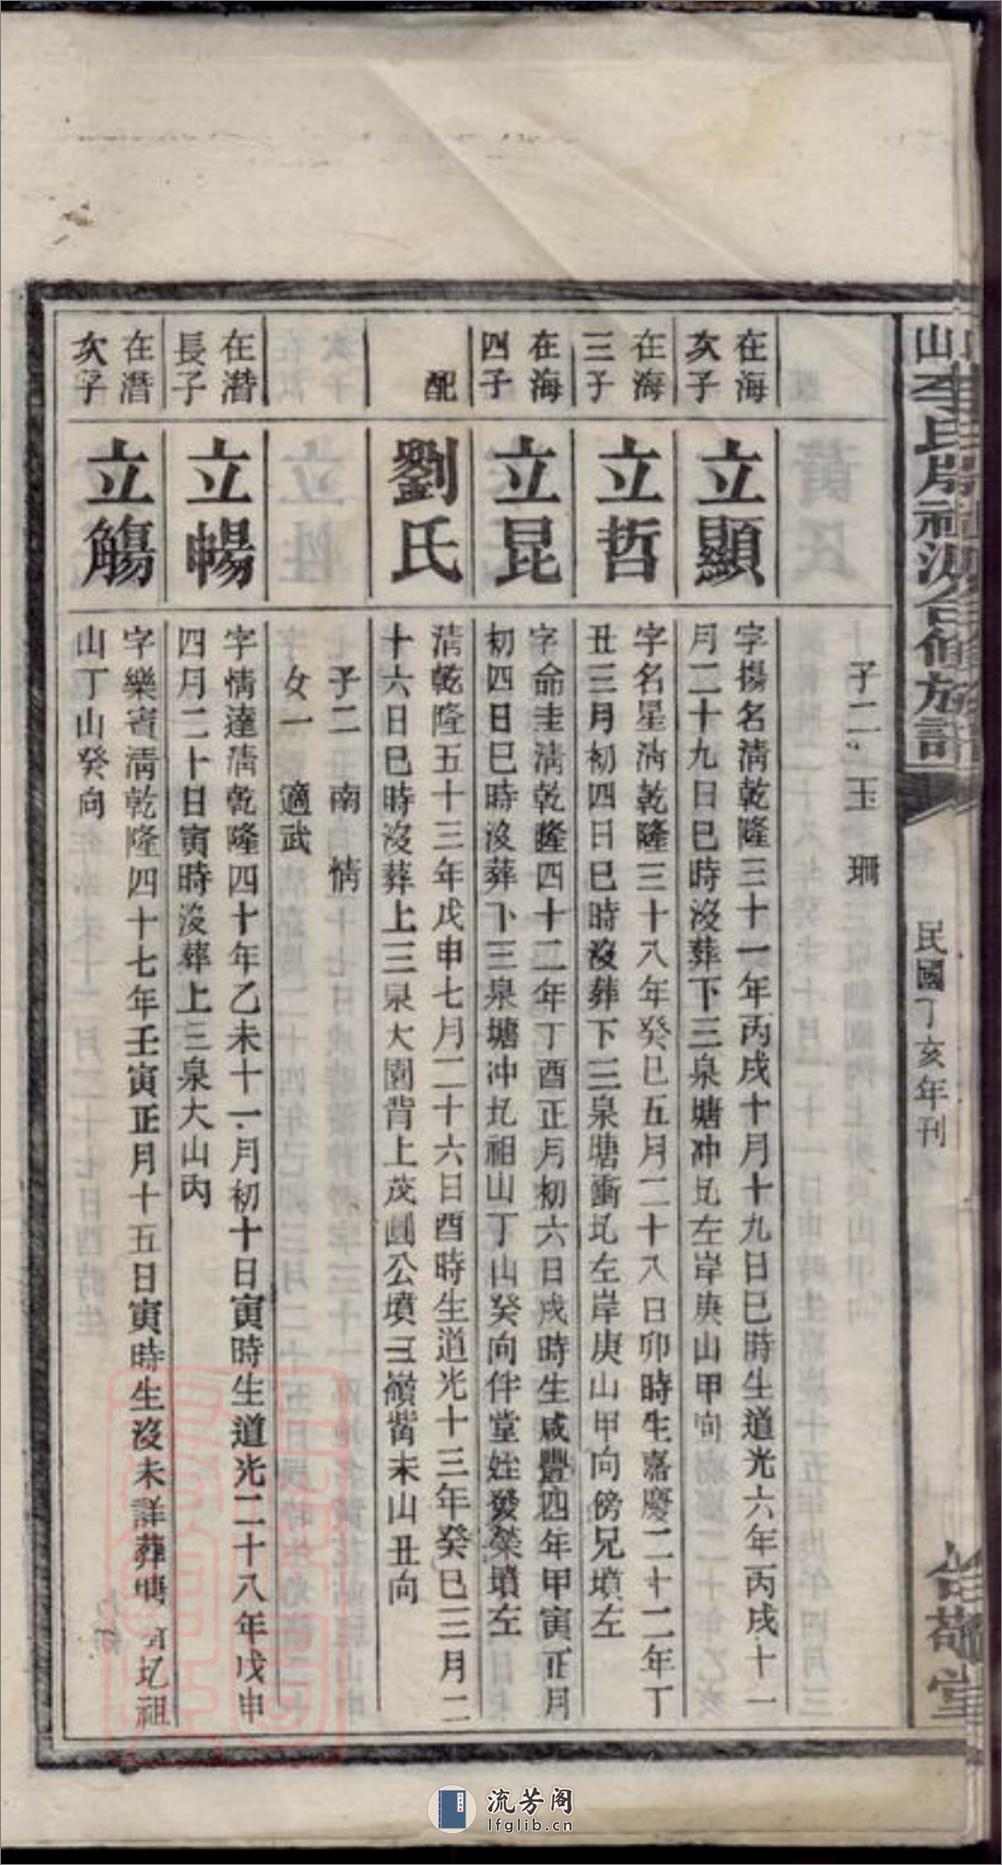 子二 玉 珊
在海
次子
立顯
字揚名清乾隆三十一年丙戌十月十九日巳時生道光六年丙戌十一
月二十九日巳時沒葬下三泉塘冲圠左岸庚山甲向
在海
三子
立哲
字名星清乾隆三十八年癸巳五月二十八日卯時生嘉慶二十二年丁
丑三月初四日巳時沒葬下三泉塘衝圠左岸庚山甲向傍兄墳左
在海
四子
立昆
字命圭清乾隆四十二年丁酉正月初六日戌時生咸豐四年甲寅正月
初四日巳時沒葬下三泉塘冲圠祖山丁山癸向伴堂姪發榮墳左
配
劉氏
清乾隆五十三年戊申七月二十六日酉時生道光十三年癸巳三月二
十六日巳時沒葬上三泉大園背上茂圓公墳三嶺嘴未山丑向
子二 南 情
女一 適武
在潛
長子
立暢
字情達清乾隆四十年乙未十一月初十日寅時生道光二十八年戊申
四月二十日寅時沒葬上三泉大山丙
在潛
次子
立觴
字樂賓清乾隆四十七年壬寅正月十五日寅時生沒未詳葬塘 圠祖
山丁山癸向
山李氏房祖源合修族譜
民國丁亥年刊
敬堂
流芳阁
lfglib.cn